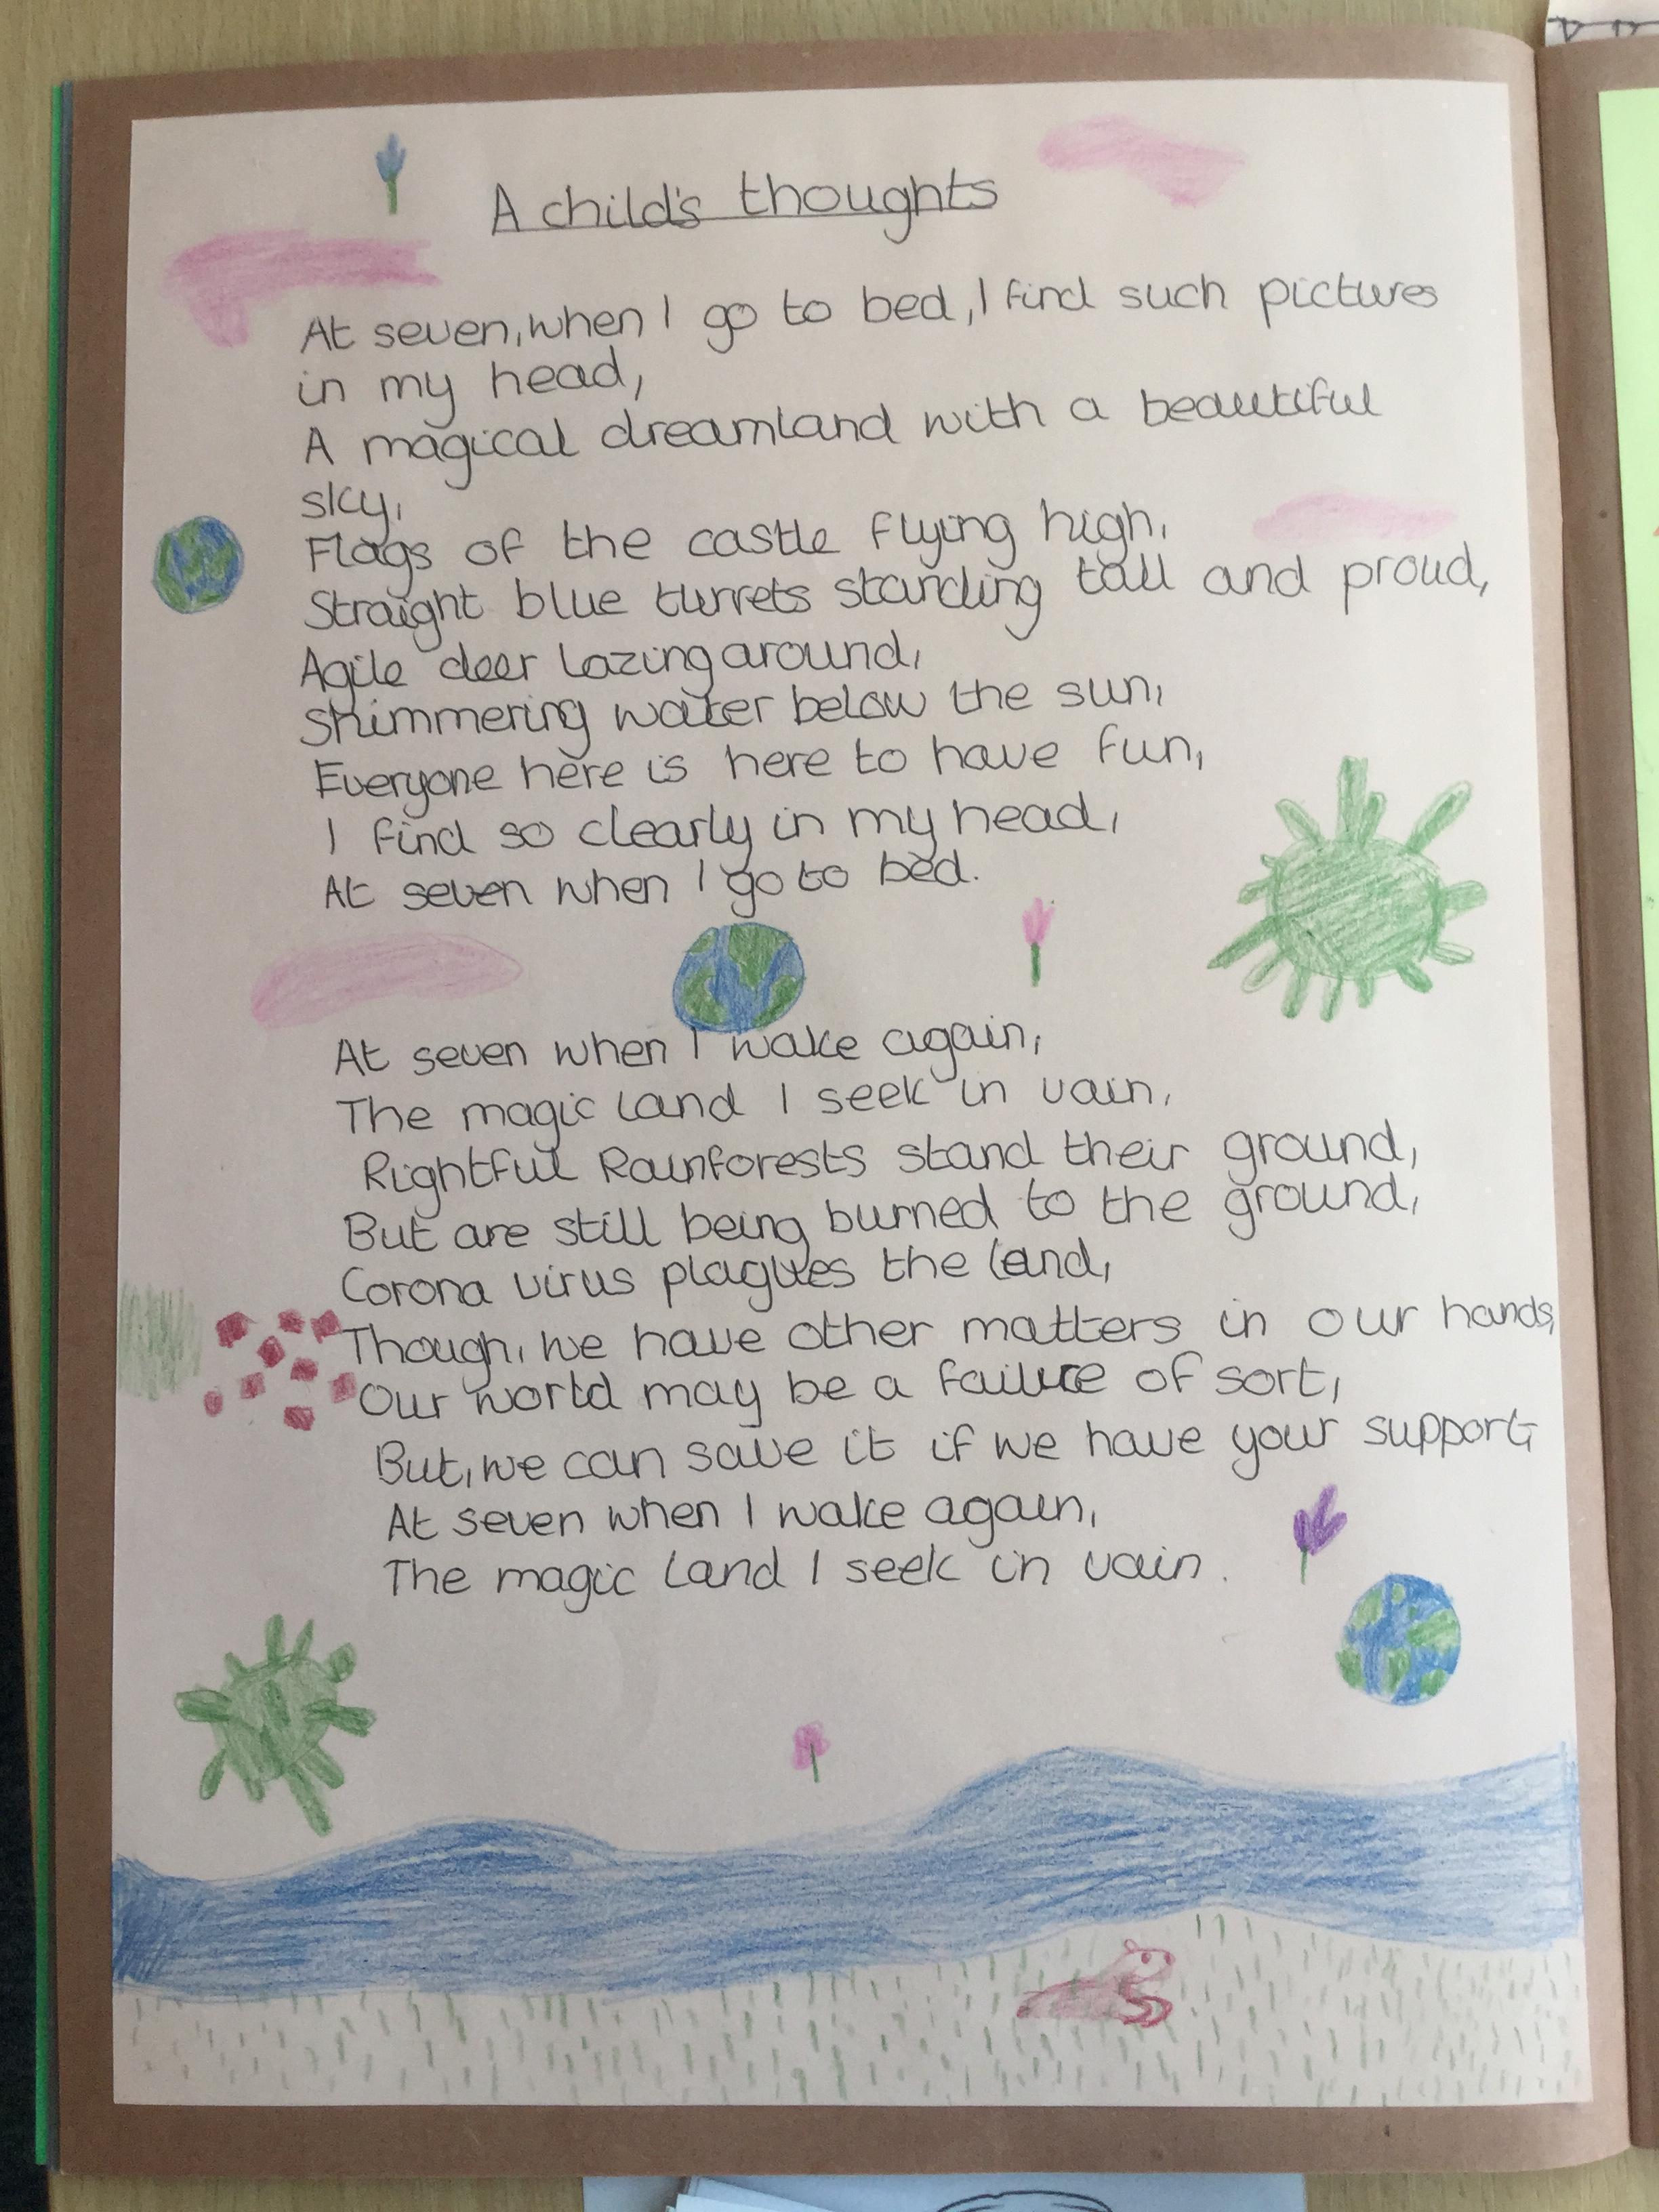 A child's thoughts
At seven, when I go to bed, I find such pictures
in my head,
A magical dreamland with a beautiful
sky,
Flags of the castle flying high,
Straight blue turrets standing tall and proud,
Agile deer lazing around,
Shimmering water below the sun,
Everyone here is here to have fun,
I find so clearly in my head,
At seven when I go to bed.
At seven when I wake again,
The magic land I seek in vain,
Rightful Rainforests stand their ground,
But are still being burned to the ground,
Corona virus plagues the land,
Though, we have other matters in our hands,
Our world may be a failure of sort,
But, we can save it if we have your support
At seven when I wake again,
The magic land I seek in vain.